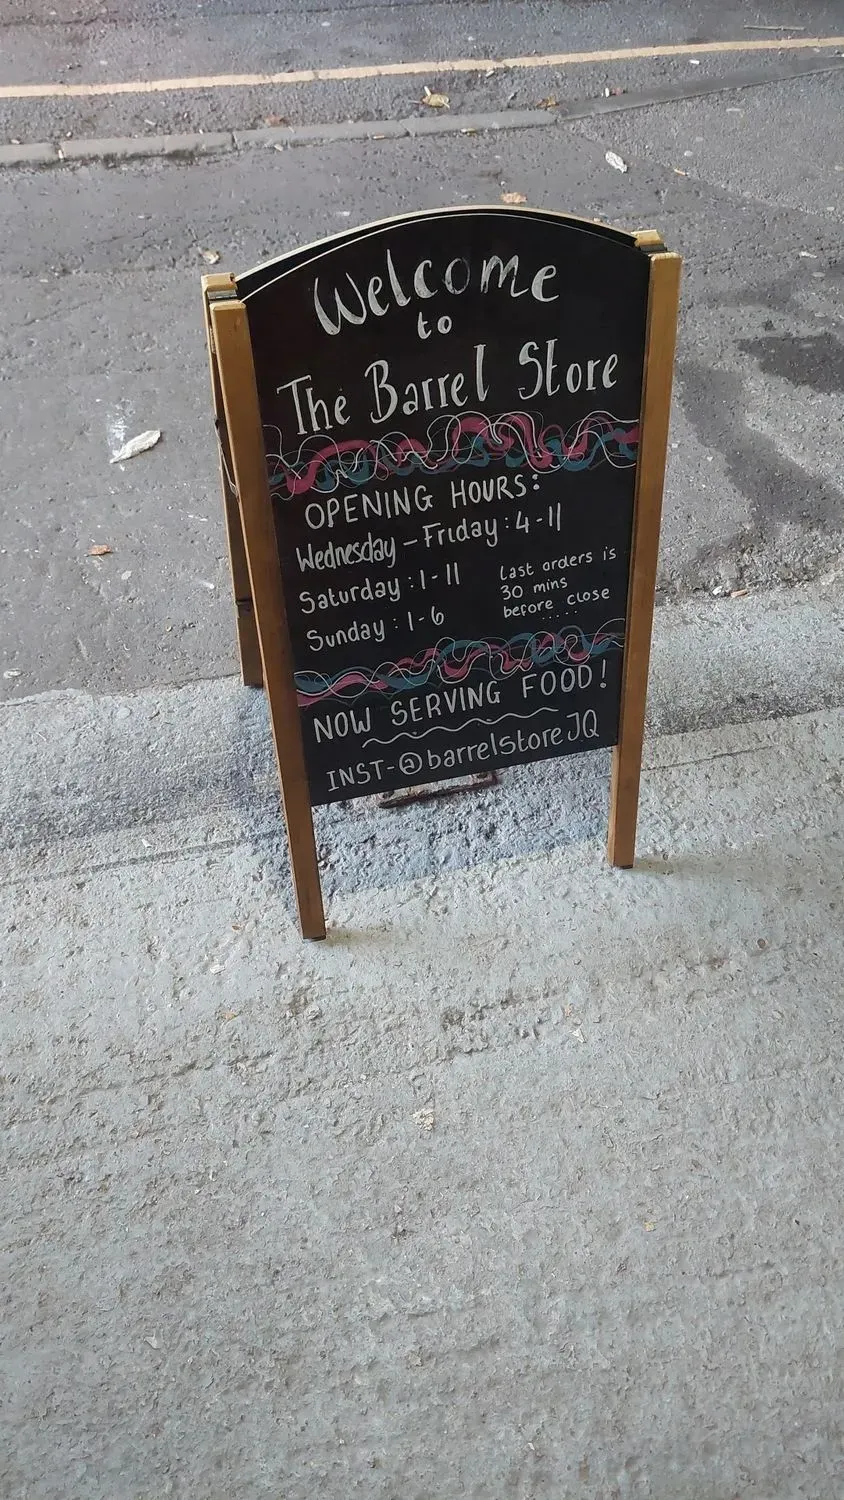 Welcome
to
The Barrel Store
OPENING HOURS:
Wednesday - Friday : 4 - 11
Saturday : 1 - 11
Sunday : 1 - 6
Last orders is
30 mins
before close
NOW SERVING FOOD!
INST - @barrelstoreJQ